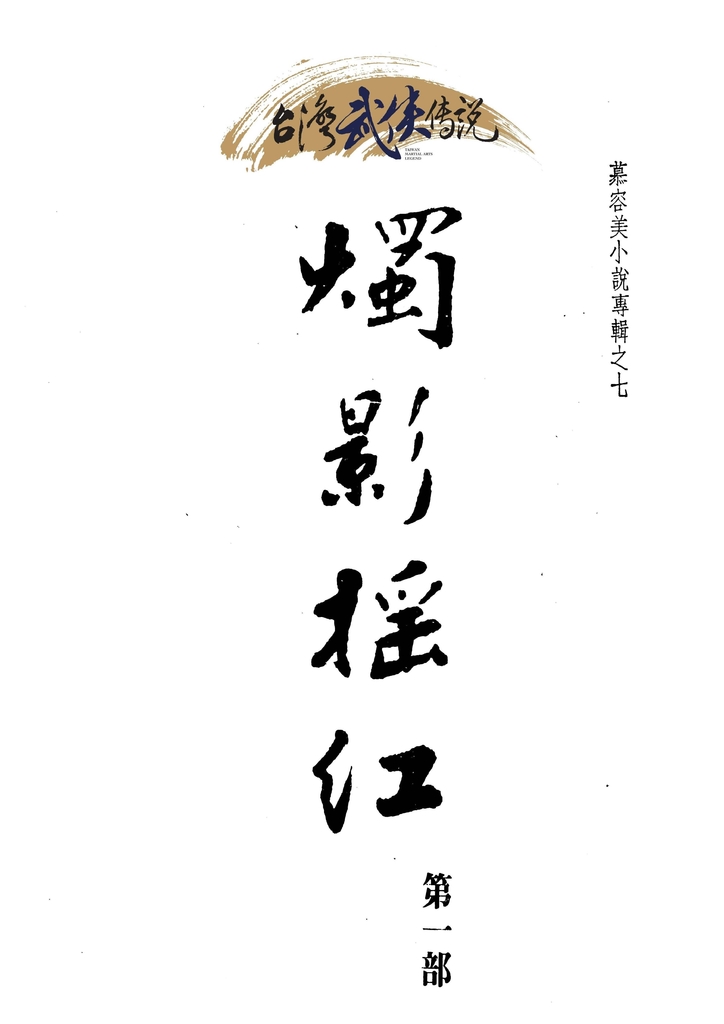 台灣武俠傳說
TAIWAN
MARTIAL ARTS
LEGEND
慕容美小說專輯之七
燭影摇红
第一部